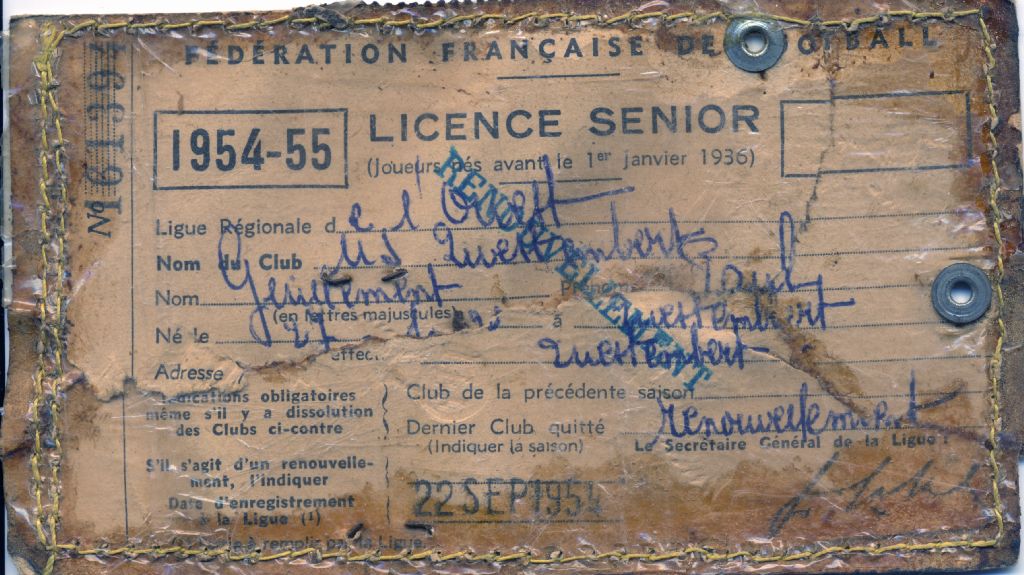 FÉDÉRATION FRANÇAISE DE FOOTBALL
Nº 161394
1954-55
LICENCE SENIOR
(Joueurs nés avant le 1er janvier 1936)
RENOUVELLEMENT
Ligue Régionale de l'Ouest
Nom du Club US Questembert
Nom Prénom
(en lettres majuscules)
Né le 27 à Questembert
Adresse Questembert
Indications obligatoires
même s'il y a dissolution
des Clubs ci-contre
Club de la précédente saison
Dernier Club quitté renouvellement
(Indiquer la saison)
Le Secrétaire Général de la Ligue :
S'il s'agit d'un renouvelle-
ment, l'indiquer
Date d'enregistrement
à la Ligue (1)
22 SEP 1954
à remplir par la Ligue